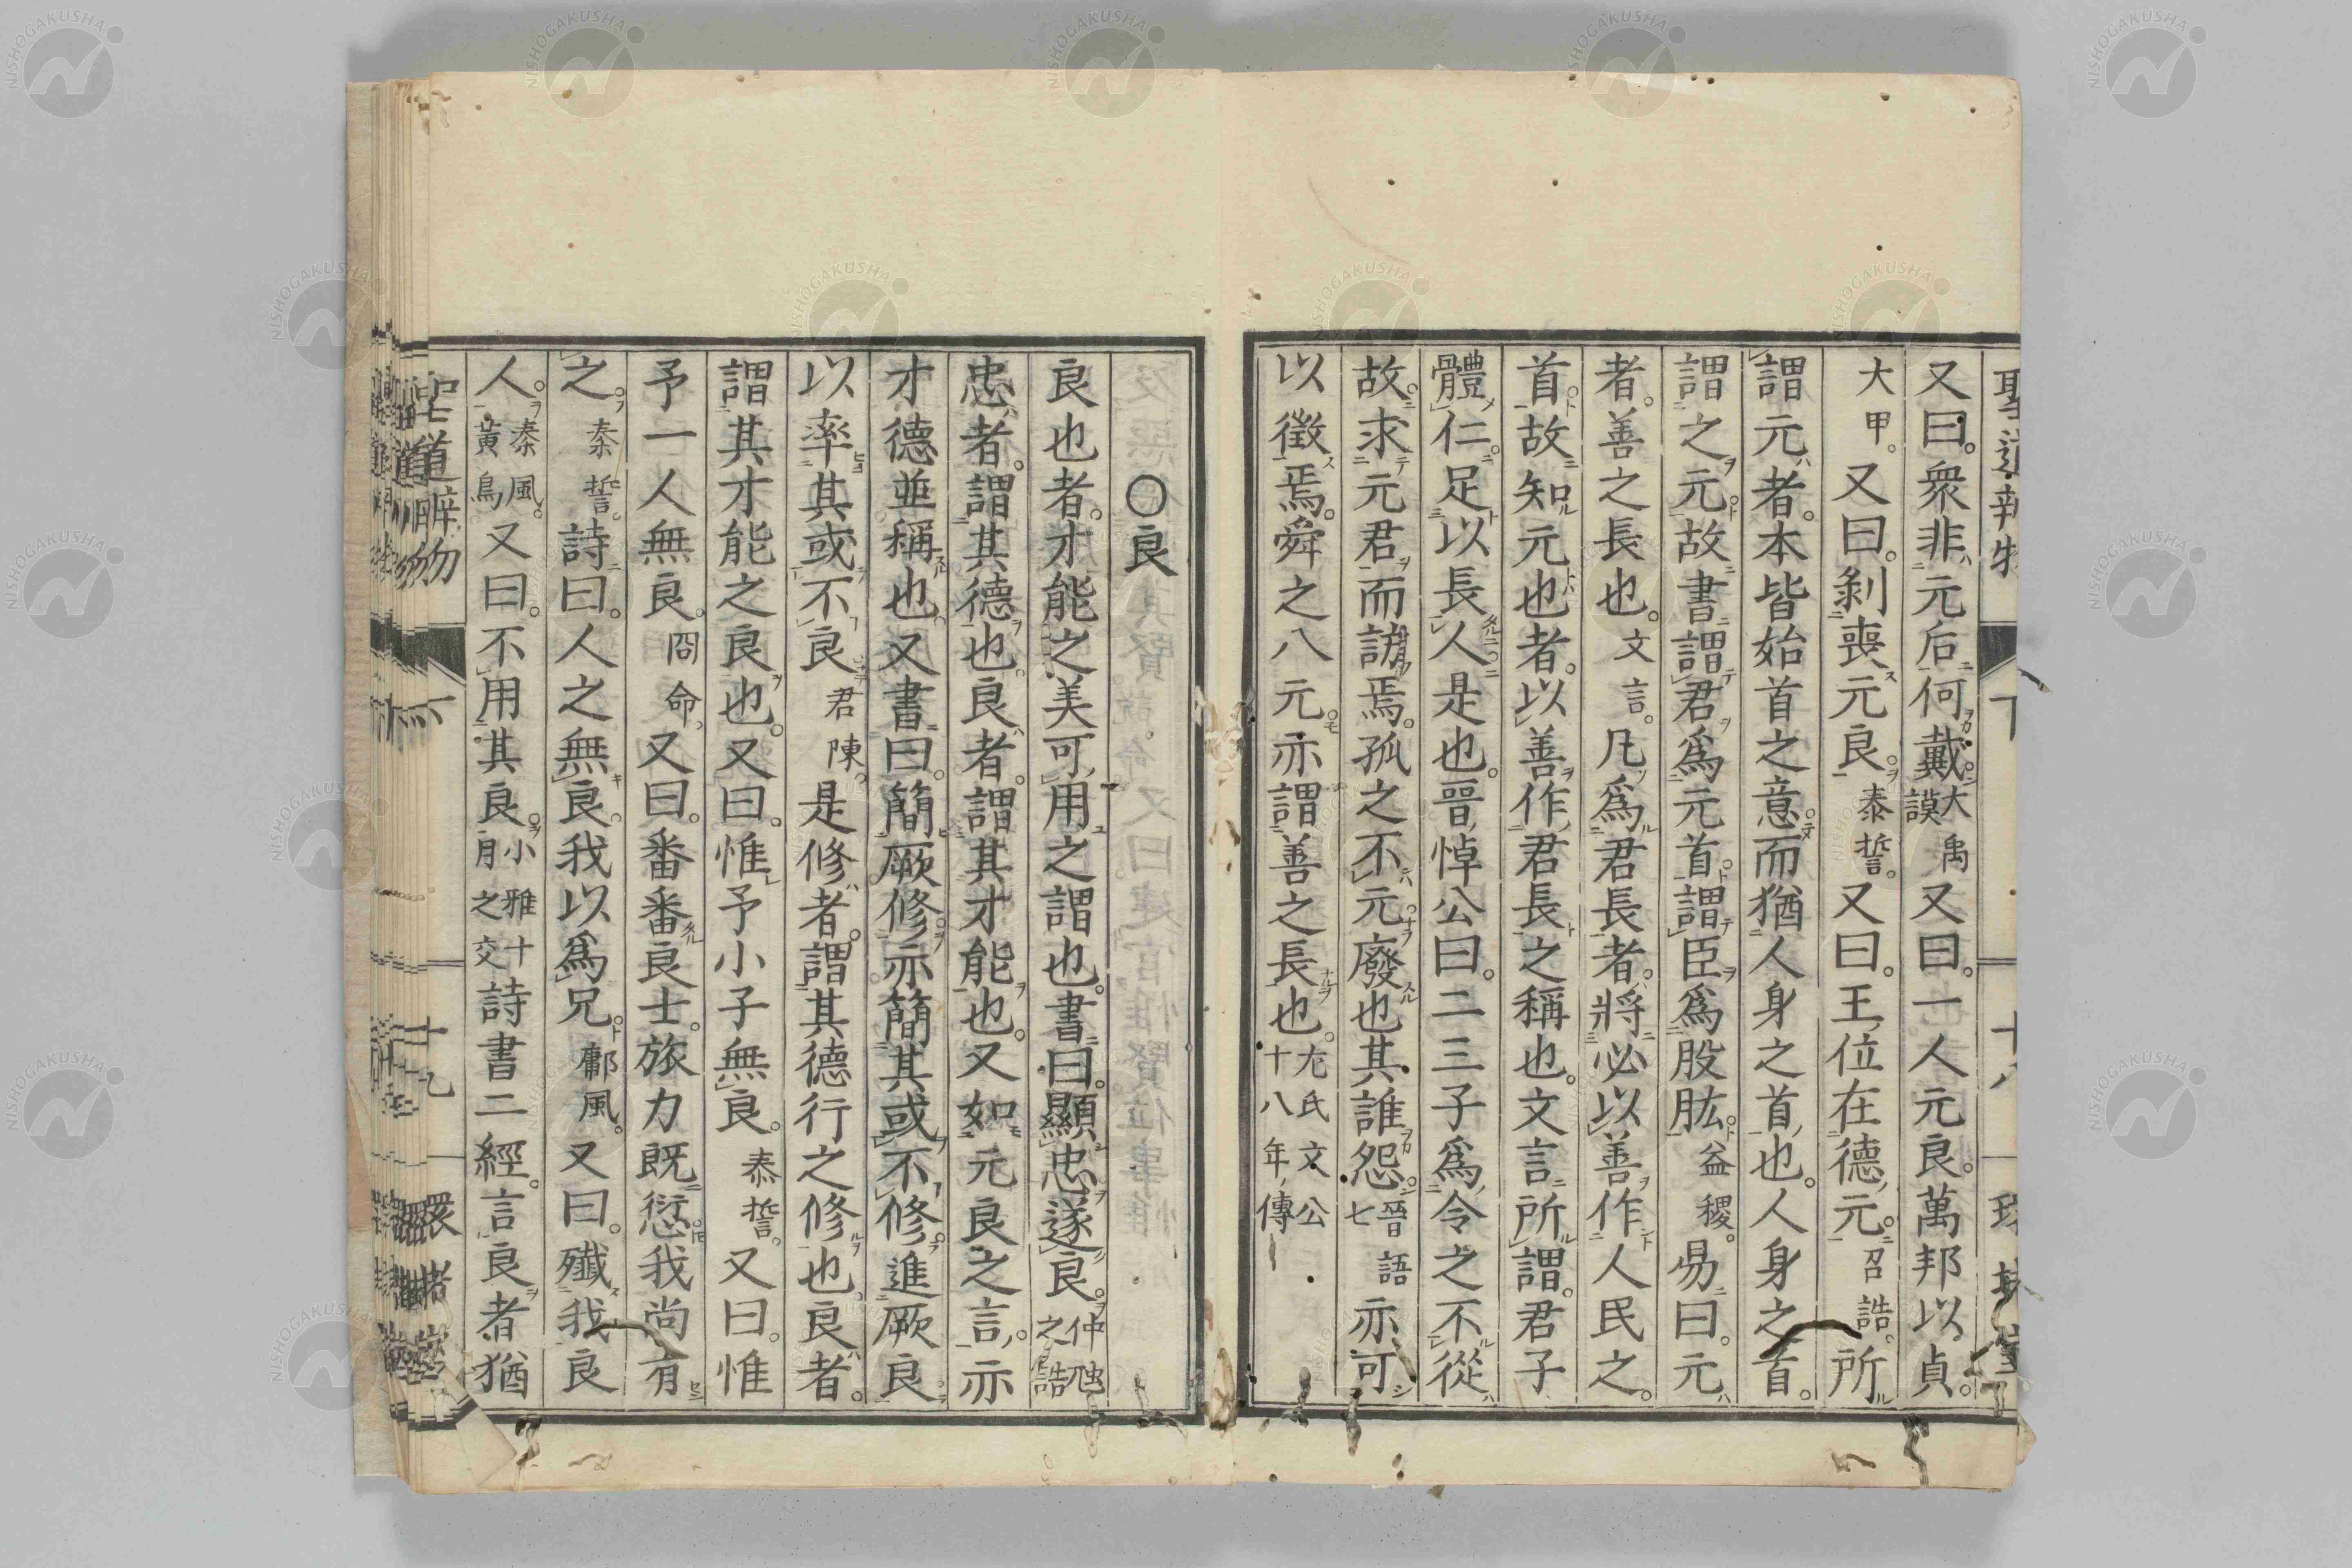 又曰。衆非元后何戴。大禹謨又曰。一人元良。萬邦以貞。
大甲。又曰。剝喪元良。泰誓。又曰。王位在德元。召誥。所
謂元者。本皆始首之意。而猶人身之首也。人身之首。
謂之元。故書謂君爲元首。謂臣爲股肱。益稷。易曰。元
者。善之長也。文言。凡爲君長者。將必以善作人民之
首。故知元也者。以善作君長之稱也。文言所謂。君子
體仁。足以長人是也。晉悼公曰。二三子爲令之不從。
故求元君而訪焉。孤之不元。廢也其誰怨。晉語七亦可
以徵焉。舜之八元。亦謂善之長也。左氏文公十八年傳
〇良
良也者。才能之美可用之謂也。書曰。顯忠遂良。仲虺之誥
忠者。謂其德也。良者。謂其才能也。又如元良之言。亦
才德並稱也。又書曰。簡厥修。亦簡其或不修。進厥良。
以率其或不良。君陳。是修者。謂其德行之修也。良者。
謂其才能之良也。又曰。惟予小子無良。泰誓。又曰。惟
予一人無良。冏命。又曰。番番良士。旅力既愆。我尚有
之。秦誓。詩曰。人之無良。我以爲兄。鄘風。又曰。殲我良
人。秦風。黃鳥又曰。不用其良。小雅十月之交詩書二經。言良者猶
聖道辨物 下 十九 環堵室